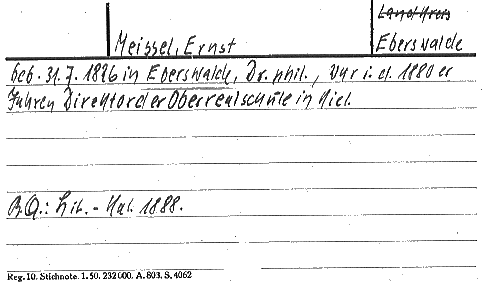 Landkreis
Meissel, Ernst
Eberswalde
Geb. 31.7.1826 in Eberswalde, Dr. phil., war i. d. 1880 er
Jahren Direktor der Oberrealschule in Kiel.
B.Q.: Lit. - Kal. 1888.
Reg. 10. Stichnote. 1. 50. 232000. A. 803. S. 4062